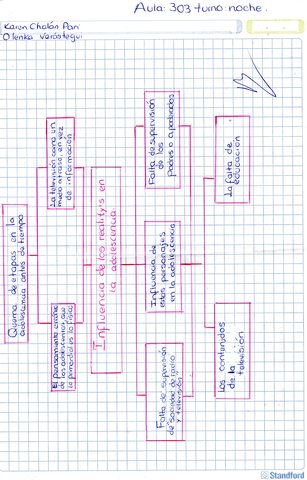 Aula: 303 turno noche.
Karen Chalán Pari
Olenka Verástegui
Quema de etapas en la
adolescencia antes de tiempo
La televisión como un
mero arrase, en vez
de información
El pensamiento erróneo
de los adolescentes, que
la pantalla es lo
Influencia de los reality's en
la adolescencia.
Falta de supervisión
de los
Padres o apoderados
Influencia de
estos personajes
en la adolescencia
Falta de supervisión
de sociedad de radio
y televisión
La falta de
educación
Los contenidos
de la
televisión
Standford